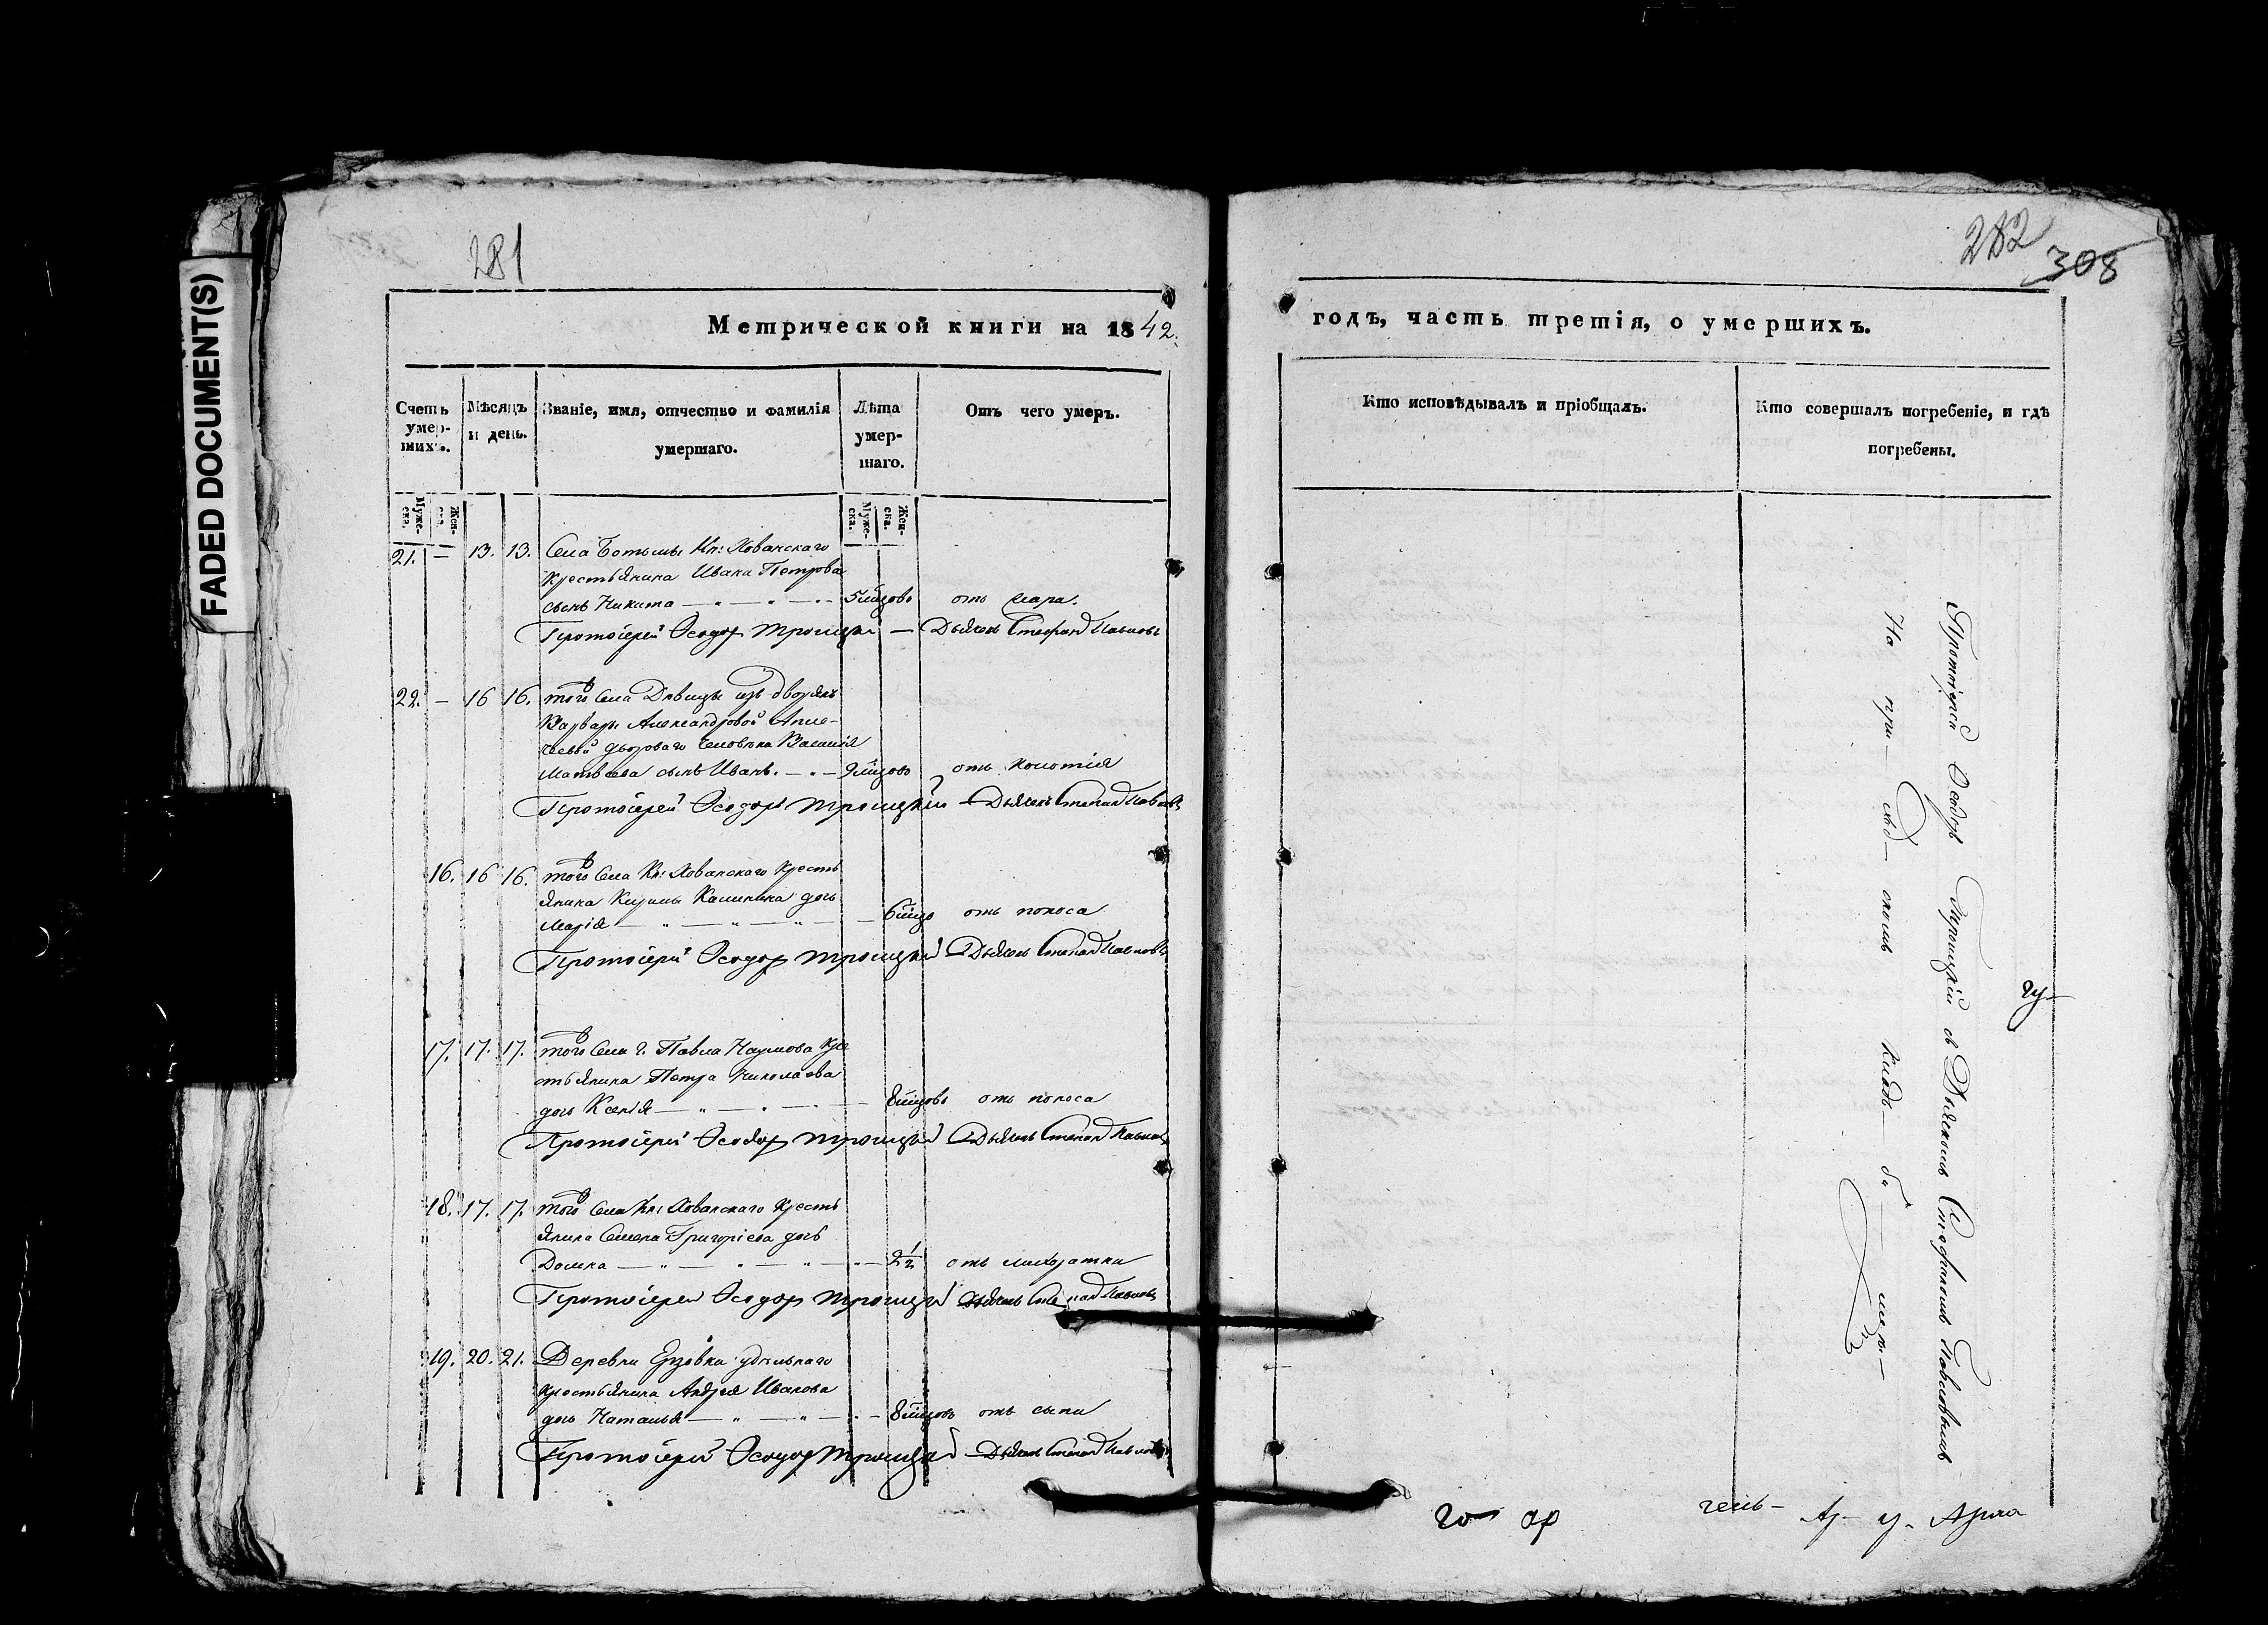 FADED DOCUMENT(S)
281
Метрической книги на 1842.
Счетъ умер-шихъ.
Мѣсяцъ и день.
Званіе, имя, отчество и фамилія умершаго.
Лѣта умер-шаго.
Отъ чего умеръ.
Муже-ска.
Жен-ска.
Муже-ска.
Жен-ска.
21. — 13. 13. Села Ботьмы Кн: Хованскаго
крестьянина Ивана Петрова
сынъ Никита — 5 мцовъ отъ
Протоіерей Ѳеодоръ Троицкій — Дьяконъ Стефанъ Павловъ
22. — 16 16. того Села Дѣвицы изъ дворянъ
Варвары Александровой
двороваго человѣка Василія
Матвѣева сынъ Иванъ. — 9 мцовъ отъ
Протоіерей Ѳеодоръ Троицкій — Дьяконъ Степанъ Павловъ
16. 16 16. того Села Кн: Хованскаго кресть
янина Кирилы Калинина дочь
Марія — 6 мцо отъ поноса
Протоіерей Ѳеодоръ Троицкій Дьяконъ Степанъ Павловъ
17. 17. 17. того Села г. Павла Наумова кре
стьянина Петра Николаева
дочь Ксенія — 8 мцовъ отъ поноса
Протоіерей Ѳеодоръ Троицкій Дьяконъ Степанъ Павловъ
18. 17. 17. того Села Кн: Хованскаго кресть
янина Семена Григоріева дочь
Домна — 2 1/2 отъ лихоратки
Протоіерей Ѳеодоръ Троицкій Дьяконъ Степанъ Павловъ
19. 20. 21. Деревни удѣльнаго
крестьянина Андрея Иванова
дочь Наталья — 8 мцовъ отъ сыпи
Протоіерей Ѳеодоръ Троицкій Дьяконъ Степанъ Павловъ
282
308
годъ, часть третія, о умершихъ.
Кто исповѣдывалъ и пріобщалъ.
Кто совершалъ погребеніе, и гдѣ погребены.
Протоіерей Ѳеодоръ Троицкій съ Дьякономъ Стефаномъ Павловымъ
На при— кладбищѣ